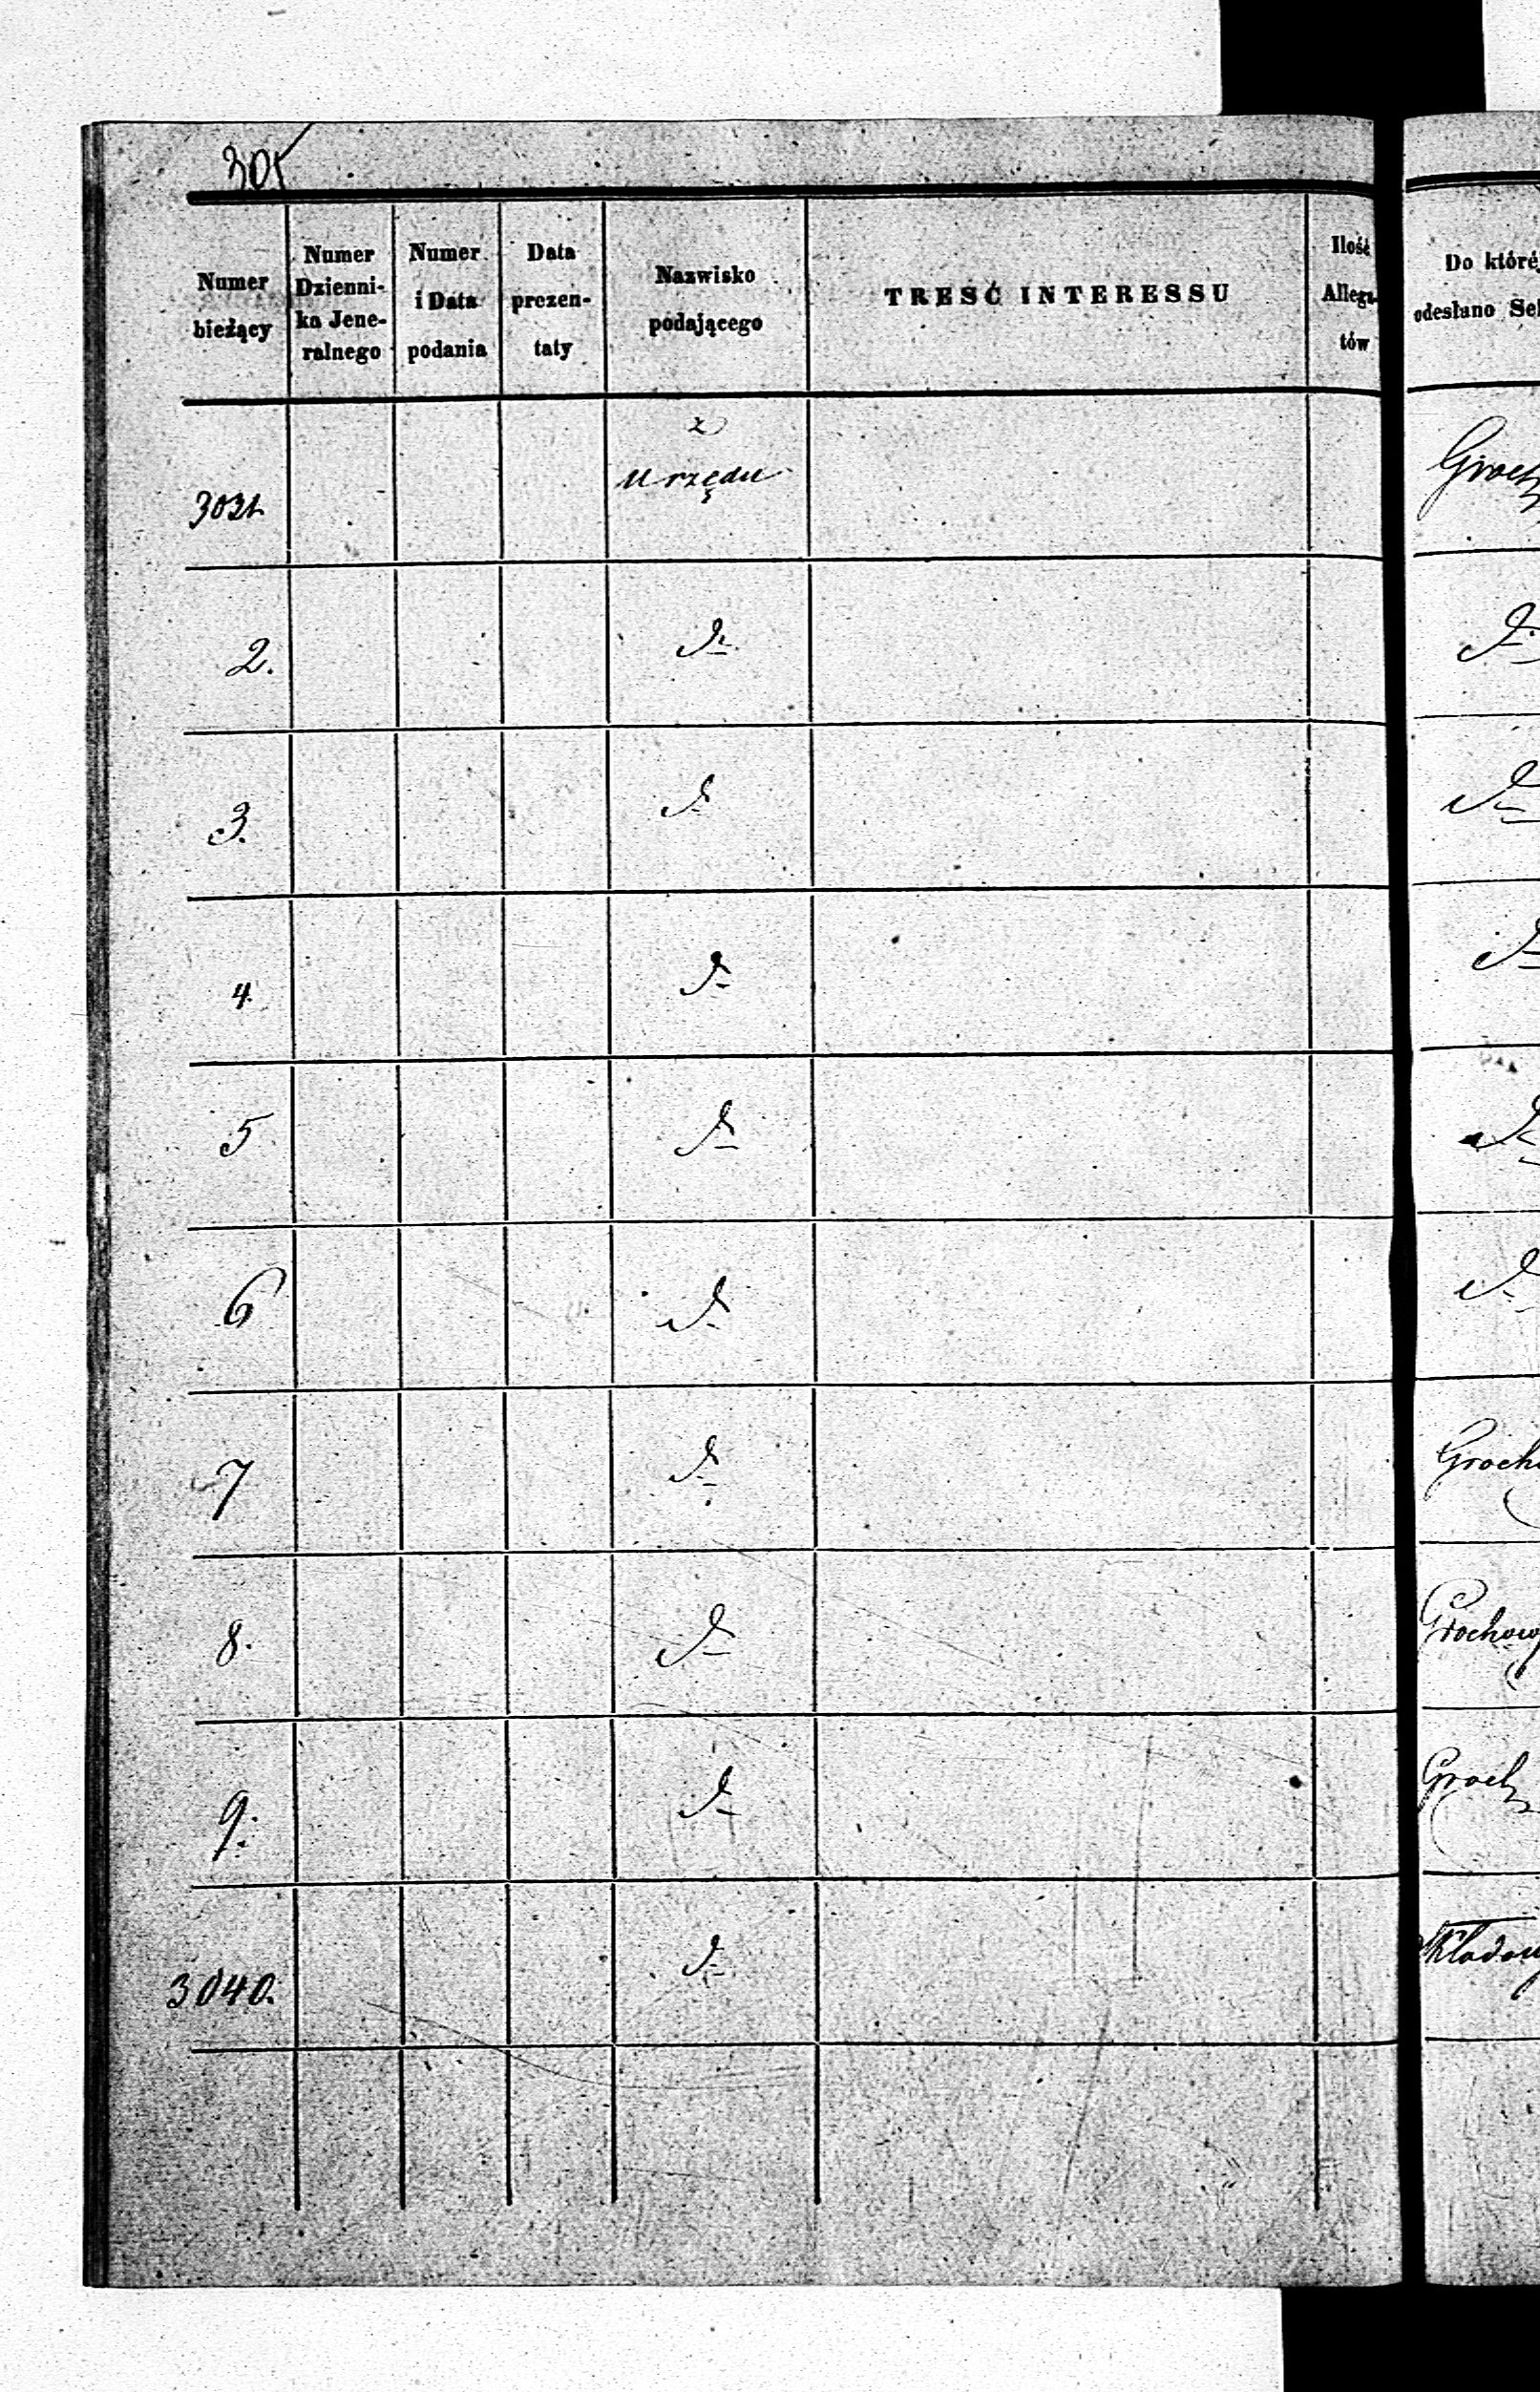 305
Numer bieżący
Numer Dzienni-
ka Jene-
ralnego
Numer i Data podania
Data prezen-
taty
Nazwisko podającego
TREŚĆ INTERESSU
Ilość Allega-
tów
Do któréj
odesłano
z
Urzędu
3031
Groch
2. do
do
3. do
do
4. do
do
5 do
do
6 do
do
7 do
Groch
8. do
Grochow
9. do
Groch
3040. do